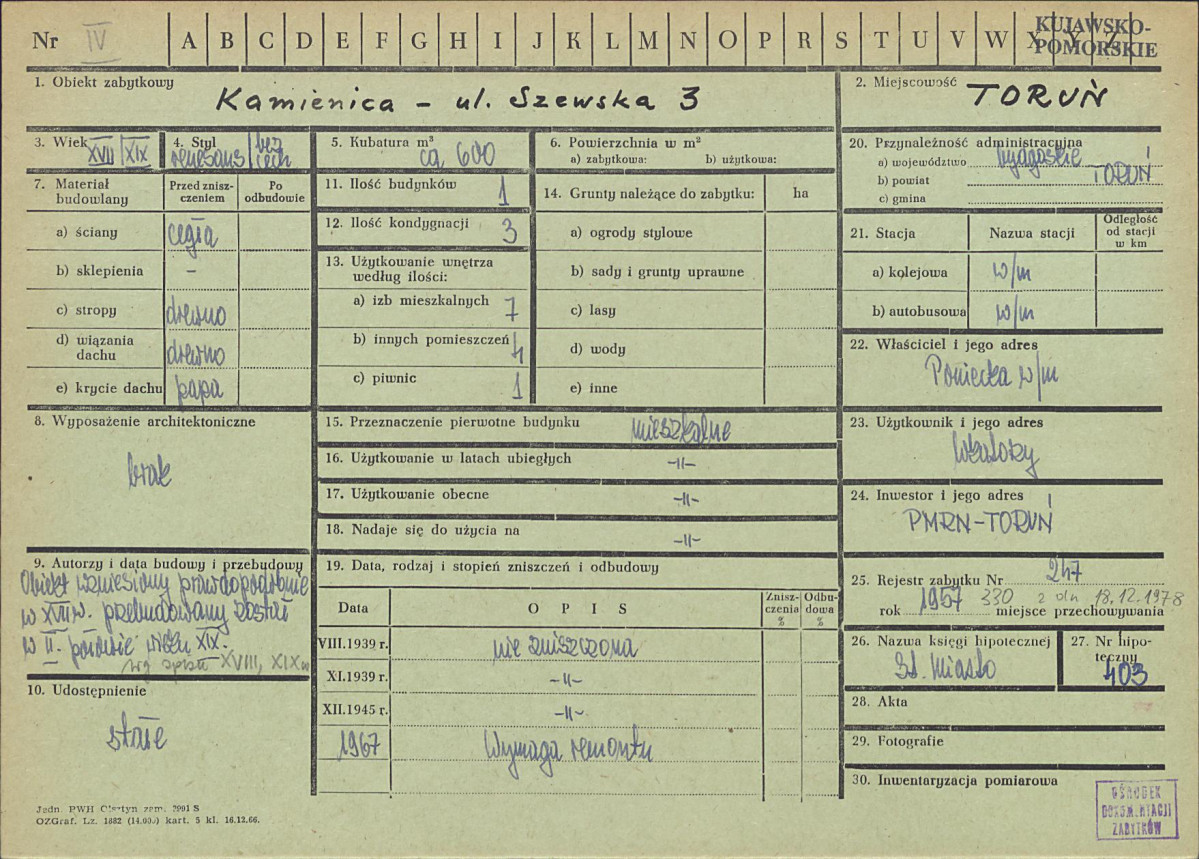 Nr IV A B C D E F G H I J K L M N O P R S T U V W X Y Z
KUJAWSKO-
POMORSKIE
1. Obiekt zabytkowy
Kamienica - ul. Szewska 3
2. Miejscowość TORUŃ
3. Wiek XVII/XIX
4. Styl renesans/bez cech
5. Kubatura m³
ca 600
6. Powierzchnia w m²
a) zabytkowa: b) użytkowa:
7. Materiał budowlany
Przed znisz-
czeniem
Po
odbudowie
a) ściany cegła
b) sklepienia -
c) stropy drewno
d) wiązania
dachu drewno
e) krycie dachu papa
8. Wyposażenie architektoniczne
brak
9. Autorzy i data budowy i przebudowy
Obiekt wzniesiony prawdopodobnie
w XVII w. przebudowany został
w II. połowie wieku XIX.
wg spisu XVIII, XIX w
10. Udostępnienie
stałe
11. Ilość budynków 1
12. Ilość kondygnacji 3
13. Użytkowanie wnętrza
według ilości:
a) izb mieszkalnych 7
b) innych pomieszczeń 4
c) piwnic 1
14. Grunty należące do zabytku: ha
a) ogrody stylowe
b) sady i grunty uprawne
c) lasy
d) wody
e) inne
15. Przeznaczenie pierwotne budynku mieszkalne
16. Użytkowanie w latach ubiegłych -11-
17. Użytkowanie obecne -11-
18. Nadaje się do użycia na -11-
19. Data, rodzaj i stopień zniszczeń i odbudowy
Data O P I S
Znisz-
czenia
%
Odbu-
dowa
%
VIII.1939 r. nie zniszczona
XI.1939 r. -11-
XII.1945 r. -11-
1967 Wymaga remontu
20. Przynależność administracyjna
a) województwo bydgoskie
b) powiat TORUŃ
c) gmina
21. Stacja Nazwa stacji
Odległość
od stacji
w km
a) kolejowa w/m
b) autobusowa w/m
22. Właściciel i jego adres
Poniecka w/m
23. Użytkownik i jego adres
lokatorzy
24. Inwestor i jego adres
PMRN-TORUŃ
25. Rejestr zabytku Nr 247
330 z dn 18.12.1978
rok 1957 miejsce przechowywania
26. Nazwa księgi hipotecznej
St. Miasto
27. Nr hipo-
teczny
403
28. Akta
29. Fotografie
30. Inwentaryzacja pomiarowa
OŚRODEK
DOKUMENTACJI
ZABYTKÓW
Jedn. PWH Olsztyn zam. 2991 S
OZGraf. Lz. 1882 (14.000) kart. 5 kl. 16.12.66.